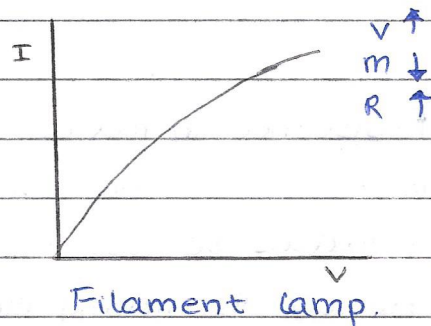 V ↑
I
m ↓
R ↑
V
Filament lamp.